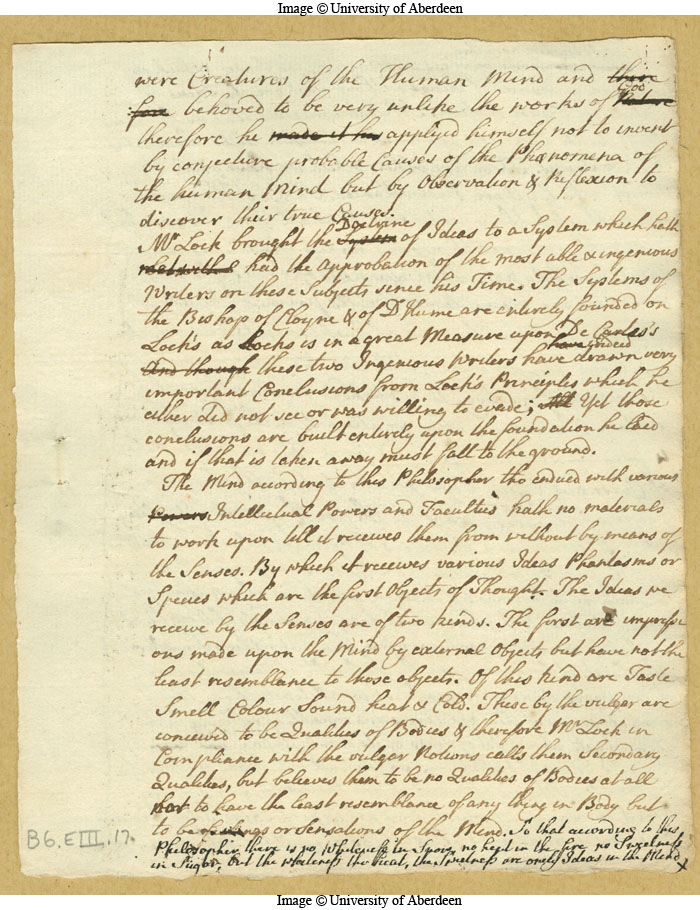 Image © University of Aberdeen
were Creatures of the Human Mind and there
fore behoved to be very unlike the works of Nature God
therefore he made it his applyed himself not to invent
by conjecture probable Causes of the Phænomena of
the human Mind but by Observation & Reflexion to
discover their true Causes.
Mr Lock brought the System Doctrine of Ideas to a System which hath
met with had the approbation of the most able & ingenious
Writers on these Subjects since his Time. The Systems of
the Bishop of Cloyne & of D Hume are entirely founded on
Lock's as Locks is in a great Measure upon De Cartes's
And though these two Ingenious Writers have indeed drawn very
important Conclusions from Lock's Principles which he
either did not see or was willing to evade; Yet those
conclusions are built entirely upon the foundation he laid
and if that is taken away must fall to the ground.
The Mind according to this Philosopher tho endued with various
Powers Intellectual Powers and Faculties hath no materials
to work upon till it receives them from without by means of
the Senses. By which it receives various Ideas Phantasms or
Species which are the first Objects of Thought. The Ideas we
receive by the Senses are of two kinds. The first are impressi
ons made upon the Mind by external Objects but have not the
least resemblance to those objects. Of this kind are Taste
Smell Colour Sound heat & Cold. These by the vulgar are
conceived to be Qualities of Bodies & therefore Mr Lock in
Compliance with the vulgar Notions calls them Secondary
Qualities, but believes them to be no Qualities of Bodies at all
nor to have the least resemblance of any thing in Body but
to be or Sensations of the Mind. So that according to this
Philosopher there is no Whiteness in Snow, no heat in the fire no Sweetness
in Sugar, but the Whiteness the heat, the Sweetness are only Ideas in the Mind X
B6.EIII.17.
Image © University of Aberdeen